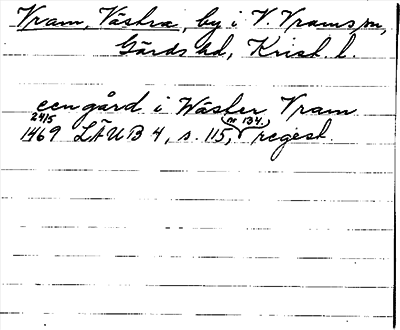 Vram, Västra, by i V. Vrams sn,
Gärds hd, Krist. l.
een gård i Wäster Vram
24/5 (nr 134.)
1469 LÄUB 4, s. 115, regest.